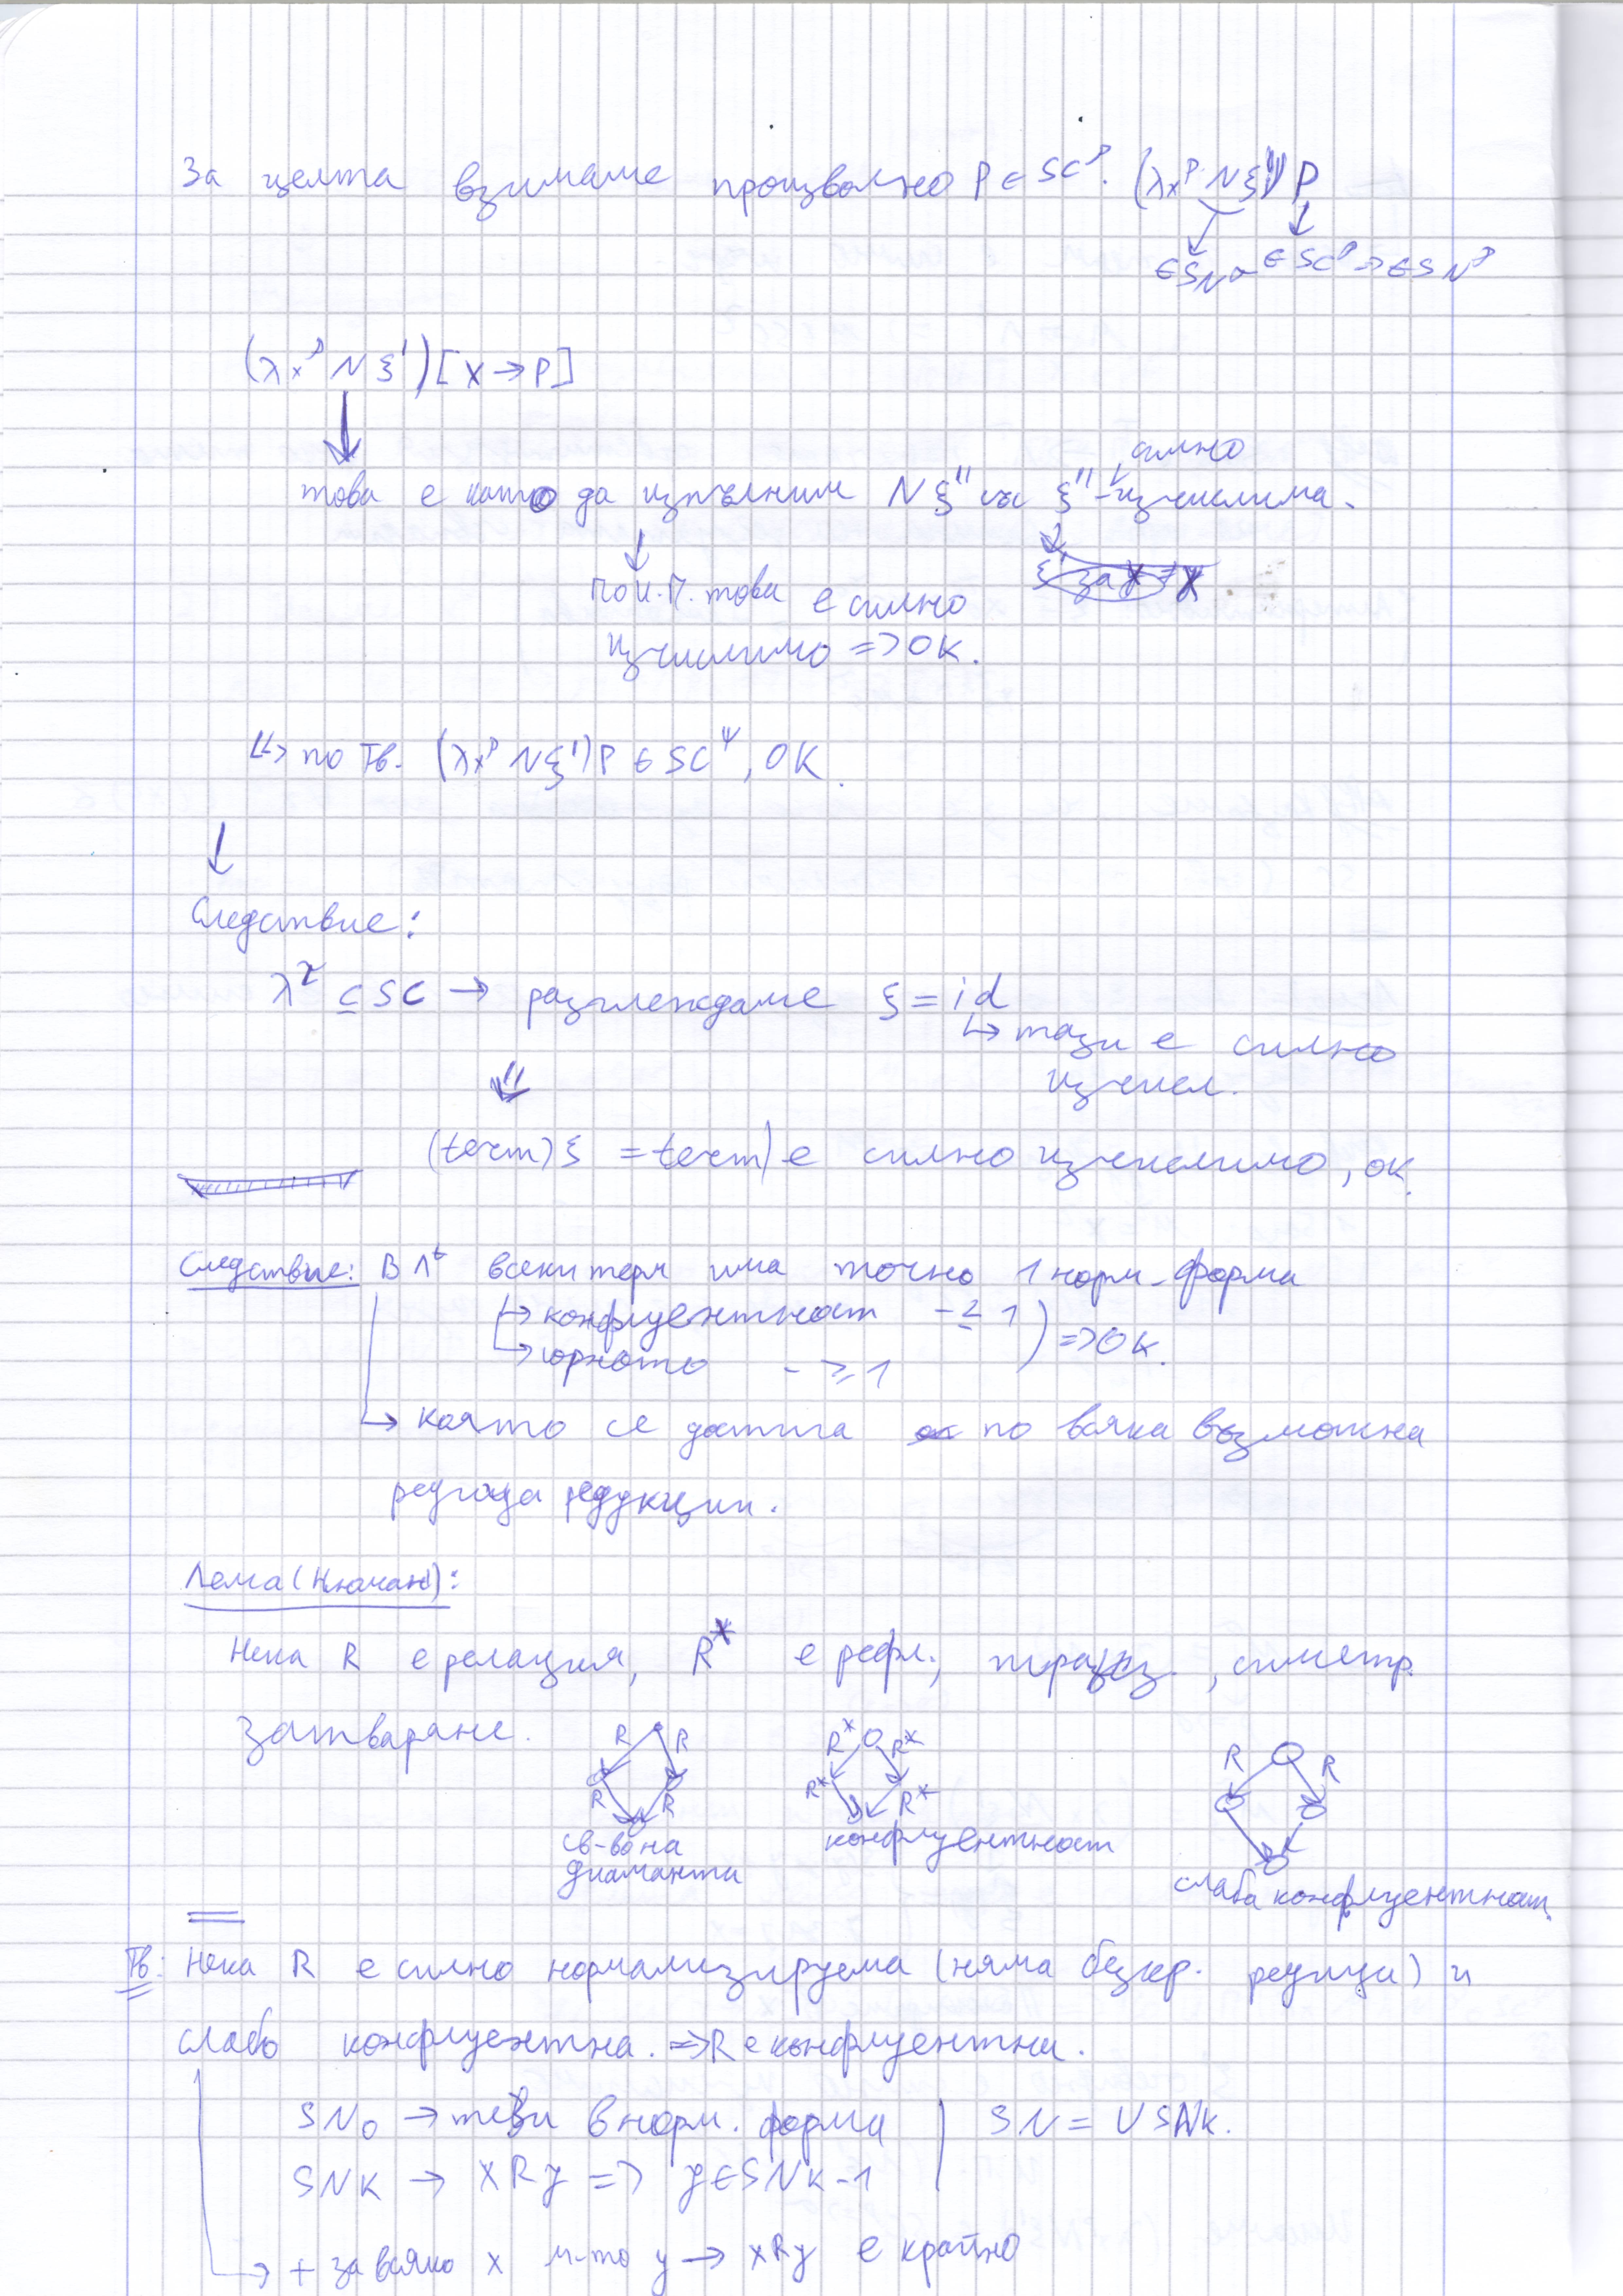 За целта взимаме произволно P ∈ SC^ρ. (λx^ρ Nξ')P
∈SN ∈ SC^ρ => ∈SN^ρ
(λx^ρ Nξ')[x→P]
силно
това е като да изпълним Nξ'' със ξ'' - изчислима.
По И.П. това е силно
изчислимо => OK.
↳ по Тв. (λx^ρ Nξ')P ∈ SC^ψ, OK.
Следствие:
λ^τ ⊆ SC → разглеждаме ξ = id
↳ тази е силно
изчисл.
(term)ξ = term) е силно изчислимо, ок.
Следствие: В Λ^t всеки терм има точно 1 норм. форма
↳ конфлуентност - ≤ 1
↳ горното - ≥ 1 ) => OK.
↳ която се достига по всяка възможна
редица редукции.
Лема (Нюман):
Нека R е релация, R* е рефл., транз., симетр.
затваряне.
R R R* R* R R
R R R* R*
св-во на
диаманта
конфлуентност
слаба конфлуентност.
Тв: Нека R е силно нормализируема (няма безкр. редици) и
слабо конфлуентна. => R е конфлуентна.
SN₀ → тези в норм. форма | SN = ∪ SNk.
SNk → xRy => y ∈ SNk-1
↳ + за всяко x м-то y → xRy е крайно